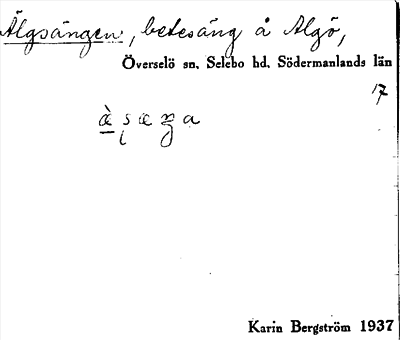 Älgsängen, betesäng å Algö,
Överselö sn. Selebo hd. Södermanlands län
17
Karin Bergström 1937